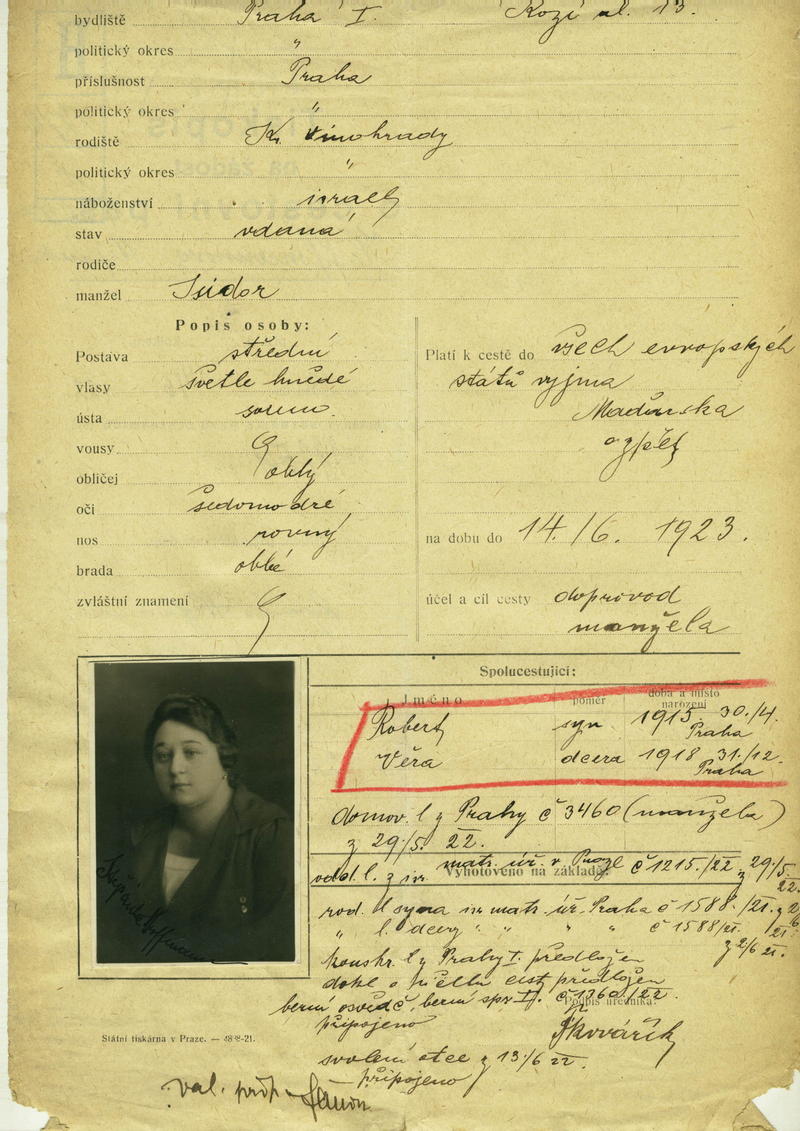 bydliště Praha I. Kozí ul. 13.
politický okres "
příslušnost Praha
politický okres "
rodiště Kr. Vinohrady
politický okres "
náboženství israel
stav vdaná
rodiče
manžel Isidor
Popis osoby:
Postava střední
vlasy světle hnědé
ústa soum.
vousy
obličej oblý
oči šedomodré
nos rovný
brada oblá
zvláštní znamení
Platí k cestě do všech evropských
států vyjma
Maďarska
a zpět
na dobu do 14./6. 1923.
účel a cíl cesty doprovod
manžela
Spolucestující:
Jméno poměr doba a místo narození
Robert syn 1915 30./4. Praha
Věra dcera 1918 31/12. Praha
domov. l z Prahy č 3460 (manžela)
z 29/5. 22.
Vyhotoveno na základě:
odd. l. z isr. matr. úř. v Praze č 1215./22 z 29/5. 22.
rod. l syna isr matr. úř. Praha č 1588./21. z 2/6 21.
" l. dcery " " " " č 1588/21. z 2/6 21.
konskr. l z Prahy I. předložen
dokl o účelu cesty předložen
berní osvědč. berní spr. I. č 1260/22.
připojeno
Podpis úředníka:
svolení otce z 13/6 22
připojeno
Štěpánka Hoffmann
Státní tiskárna v Praze. — 4898-21.